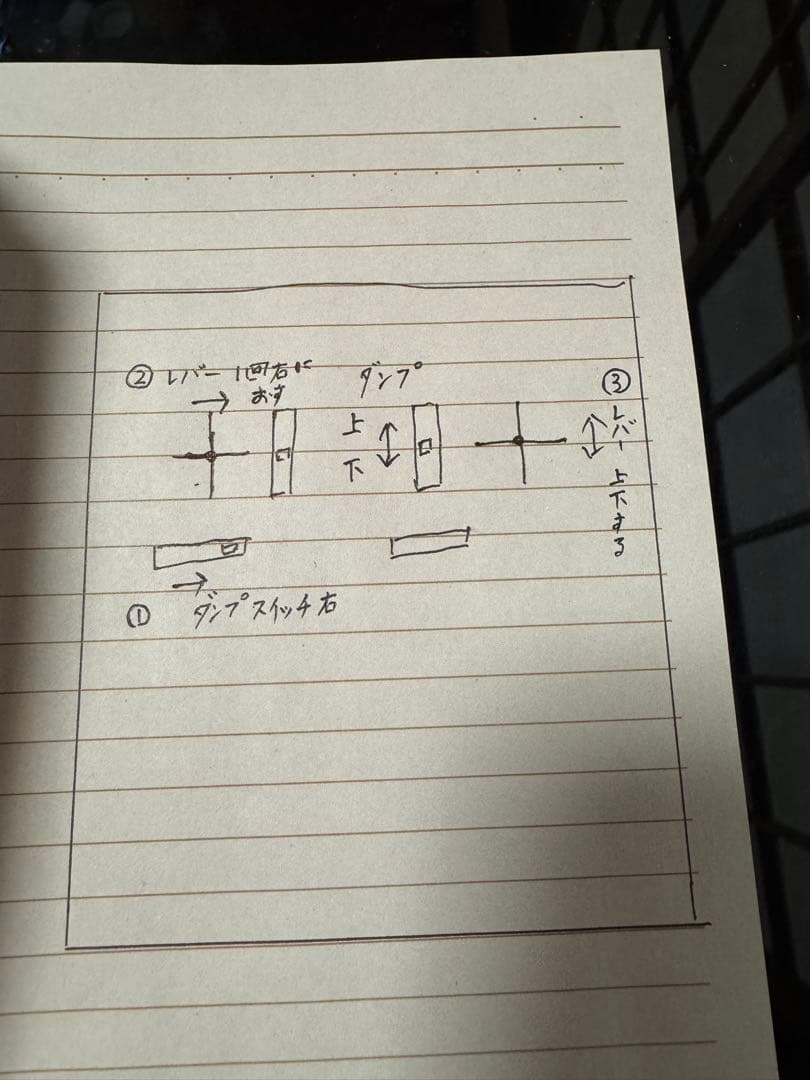 ② レバー 1回右に
おす
ダンプ
上
下
③ レバー 上下する
① ダンプスイッチ右